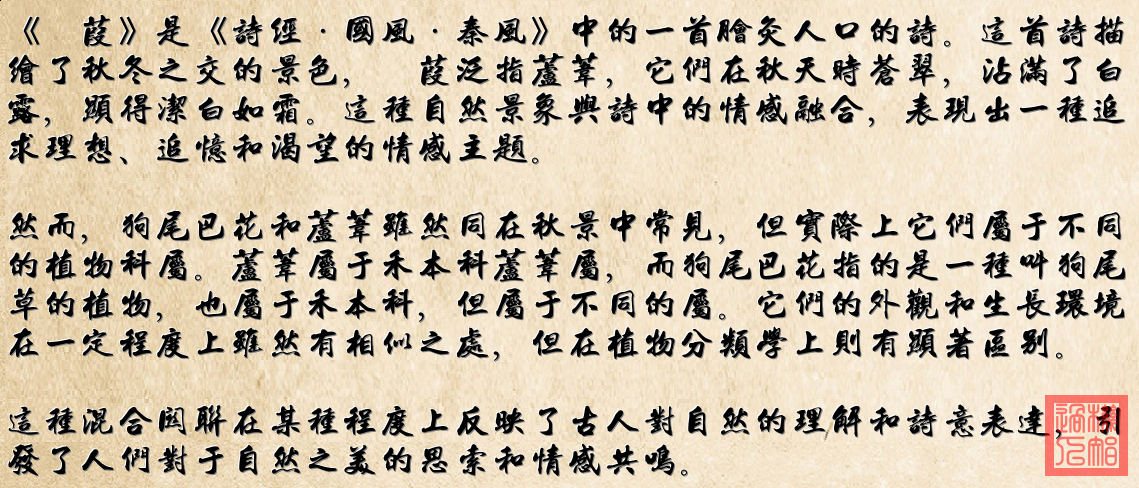 《　葭》是《詩經·國風·秦風》中的一首膾炙人口的詩。這首詩描
繪了秋冬之交的景色，　葭泛指蘆葦，它們在秋天時蒼翠，沾滿了白
露，顯得潔白如霜。這種自然景象與詩中的情感融合，表現出一種追
求理想、追憶和渴望的情感主題。
然而，狗尾巴花和蘆葦雖然同在秋景中常見，但實際上它們屬于不同
的植物科屬。蘆葦屬于禾本科蘆葦屬，而狗尾巴花指的是一種叫狗尾
草的植物，也屬于禾本科，但屬于不同的屬。它們的外觀和生長環境
在一定程度上雖然有相似之處，但在植物分類學上則有顯著區别。
這種混合関聯在某種程度上反映了古人對自然的理解和詩意表達，引
發了人們對于自然之美的思索和情感共鳴。